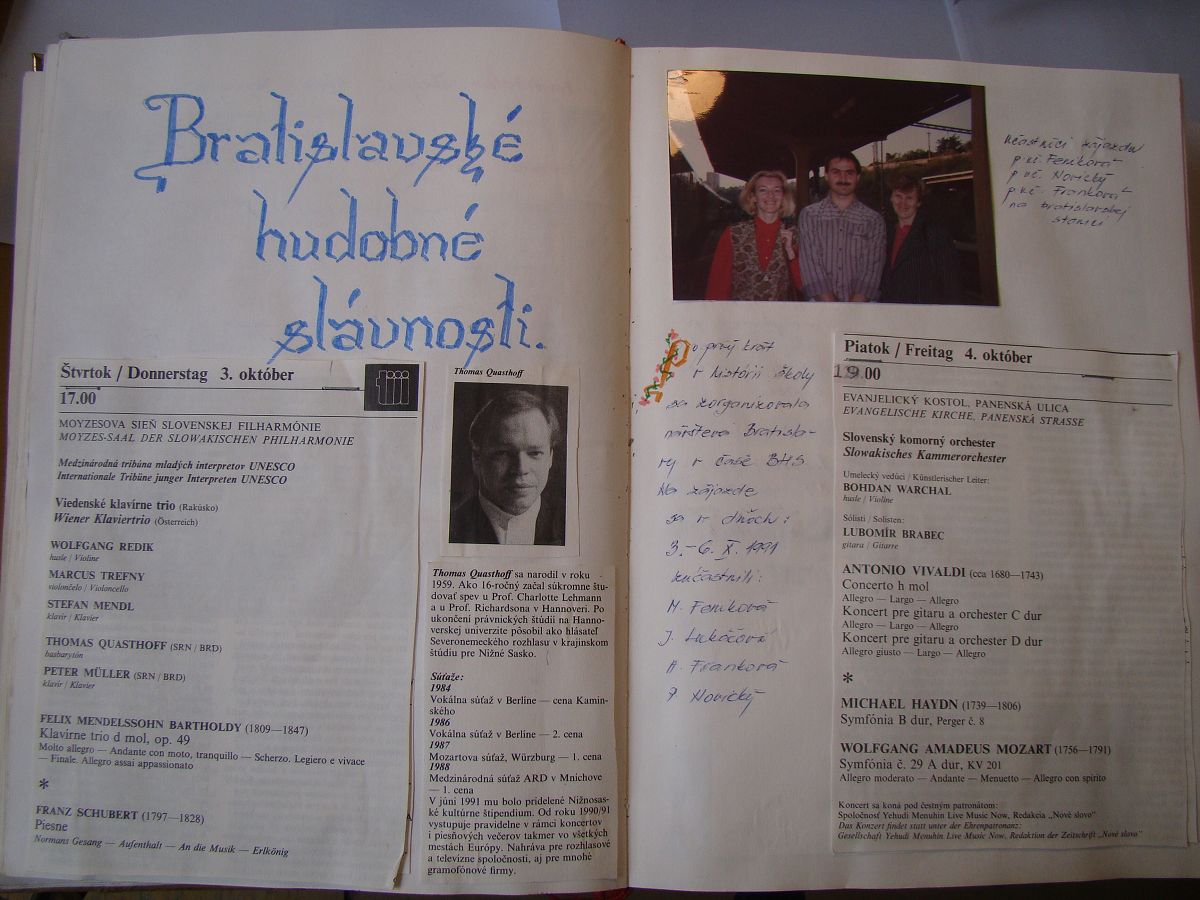 Bratislavské
hudobné
slávnosti.
Štvrtok / Donnerstag 3. október
17.00
MOYZESOVA SIEŇ SLOVENSKEJ FILHARMÓNIE
MOYZES-SAAL DER SLOWAKISCHEN PHILHARMONIE
Medzinárodná tribúna mladých interpretov UNESCO
Internationale Tribüne junger Interpreten UNESCO
Viedenské klavírne trio (Rakúsko)
Wiener Klaviertrio (Österreich)
WOLFGANG REDIK
husle / Violine
MARCUS TREFNY
violončelo / Violoncello
STEFAN MENDL
klavír / Klavier
THOMAS QUASTHOFF (SRN / BRD)
basbarytón
PETER MÜLLER (SRN / BRD)
klavír / Klavier
FELIX MENDELSSOHN BARTHOLDY (1809—1847)
Klavírne trio d mol, op. 49
Molto allegro — Andante con moto, tranquillo — Scherzo. Legiero e vivace
— Finale. Allegro assai appassionato
*
FRANZ SCHUBERT (1797—1828)
Piesne
Normans Gesang — Aufenthalt — An die Musik — Erlkönig
Thomas Quasthoff
Thomas Quasthoff sa narodil v roku
1959. Ako 16-ročný začal súkromne štu-
dovať spev u Prof. Charlotte Lehmann
a u Prof. Richardsona v Hannoveri. Po
ukončení právnických štúdií na Hanno-
verskej univerzite pôsobil ako hlásateľ
Severonemeckého rozhlasu v krajinskom
štúdiu pre Nižné Sasko.
Súťaže:
1984
Vokálna súťaž v Berlíne — cena Kamin-
ského
1986
Vokálna súťaž v Berlíne — 2. cena
1987
Mozartova súťaž, Würzburg — 1. cena
1988
Medzinárodná súťaž ARD v Mníchove
— 1. cena
V júni 1991 mu bolo pridelené Nižnosas-
ké kultúrne štipendium. Od roku 1990/91
vystupuje pravidelne v rámci koncertov
i piesňových večerov takmer vo všetkých
mestách Európy. Nahráva pre rozhlasové
a televízne spoločnosti, aj pre mnohé
gramofónové firmy.
Účastníci zájazdu
p. uč. Feníková
p. uč. Novický
p. uč. Franková
na bratislavskej
stanici
Po prvý krát
v histórii školy
sa zorganizovala
návšteva Bratisla-
vy v čase BHS
Na zájazde
sa v dňoch:
3.–6. X. 1991
zúčastnili:
M. Feníková
J. Lukáčová
A. Franková
P. Novický
Piatok / Freitag 4. október
19.00
EVANJELICKÝ KOSTOL, PANENSKÁ ULICA
EVANGELISCHE KIRCHE, PANENSKÁ STRASSE
Slovenský komorný orchester
Slowakisches Kammerorchester
Umelecký vedúci / Künstlerischer Leiter:
BOHDAN WARCHAL
husle / Violine
Sólisti / Solisten:
LUBOMÍR BRABEC
gitara / Gitarre
ANTONIO VIVALDI (cca 1680—1743)
Concerto h mol
Allegro — Largo — Allegro
Koncert pre gitaru a orchester C dur
Allegro — Largo — Allegro
Koncert pre gitaru a orchester D dur
Allegro giusto — Largo — Allegro
*
MICHAEL HAYDN (1739—1806)
Symfónia B dur, Perger č. 8
WOLFGANG AMADEUS MOZART (1756—1791)
Symfónia č. 29 A dur, KV 201
Allegro moderato — Andante — Menuetto — Allegro con spirito
Koncert sa koná pod čestným patronátom:
Spoločnosť Yehudi Menuhin Live Music Now, Redakcia „Nové slovo"
Das Konzert findet statt unter der Ehrenpatronanz:
Gesellschaft Yehudi Menuhin Live Music Now, Redaktion der Zeitschrift „Nové slovo"